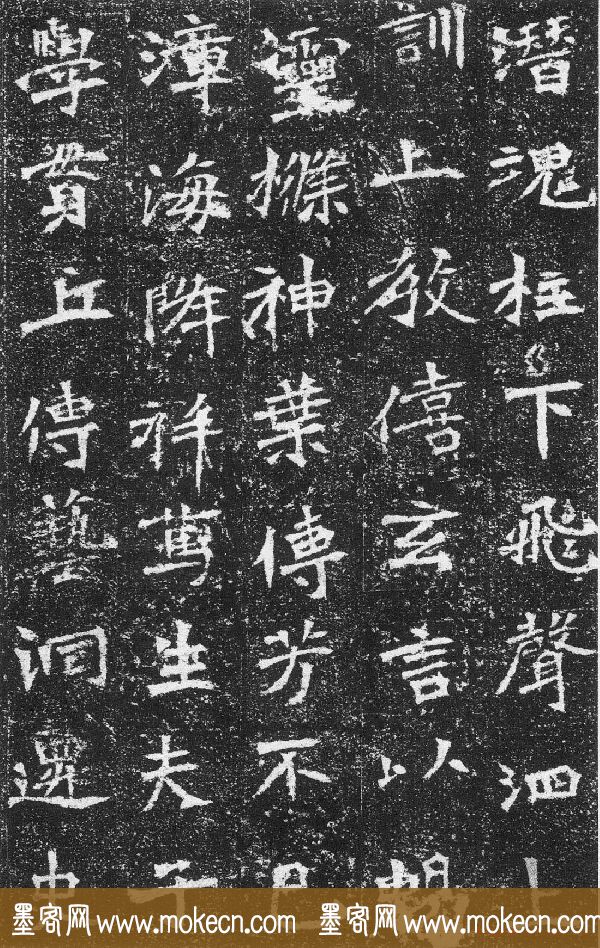 潛魂柱下飛聲泗上
訓上教僖玄言以
靈神葉傳芳不
漳海降祥篤生夫子
學貫丘傳藝洞遷
墨客网 www.mokecn.com 墨客网 www.mokecn.com